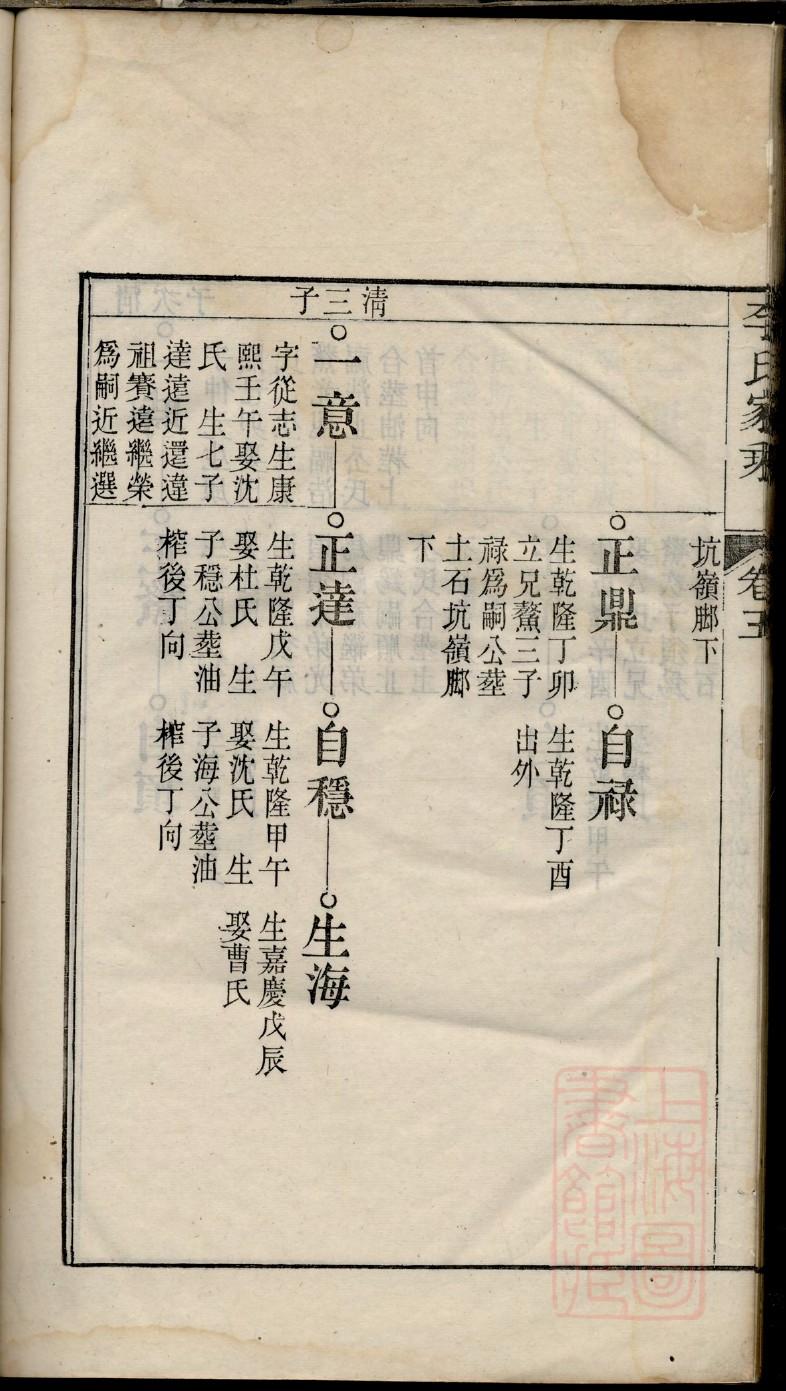 李氏家乘
卷五
坑嶺脚下
正鼎
生乾隆丁卯
立兄鰲三子
祿爲嗣公塟
土石坑嶺脚
下
自祿
生乾隆丁酉
出外
清三子
一意
字從志生康
熙壬午娶沈
氏 生七子
達遠近還違
祖賽遠繼榮
爲嗣近繼選
正達
生乾隆戊午
娶杜氏 生
子穩公塟油
榨後丁向
自穩
生乾隆甲午
娶沈氏 生
子海公塟油
榨後丁向
生海
生嘉慶戊辰
娶曹氏
上海圖
書館藏